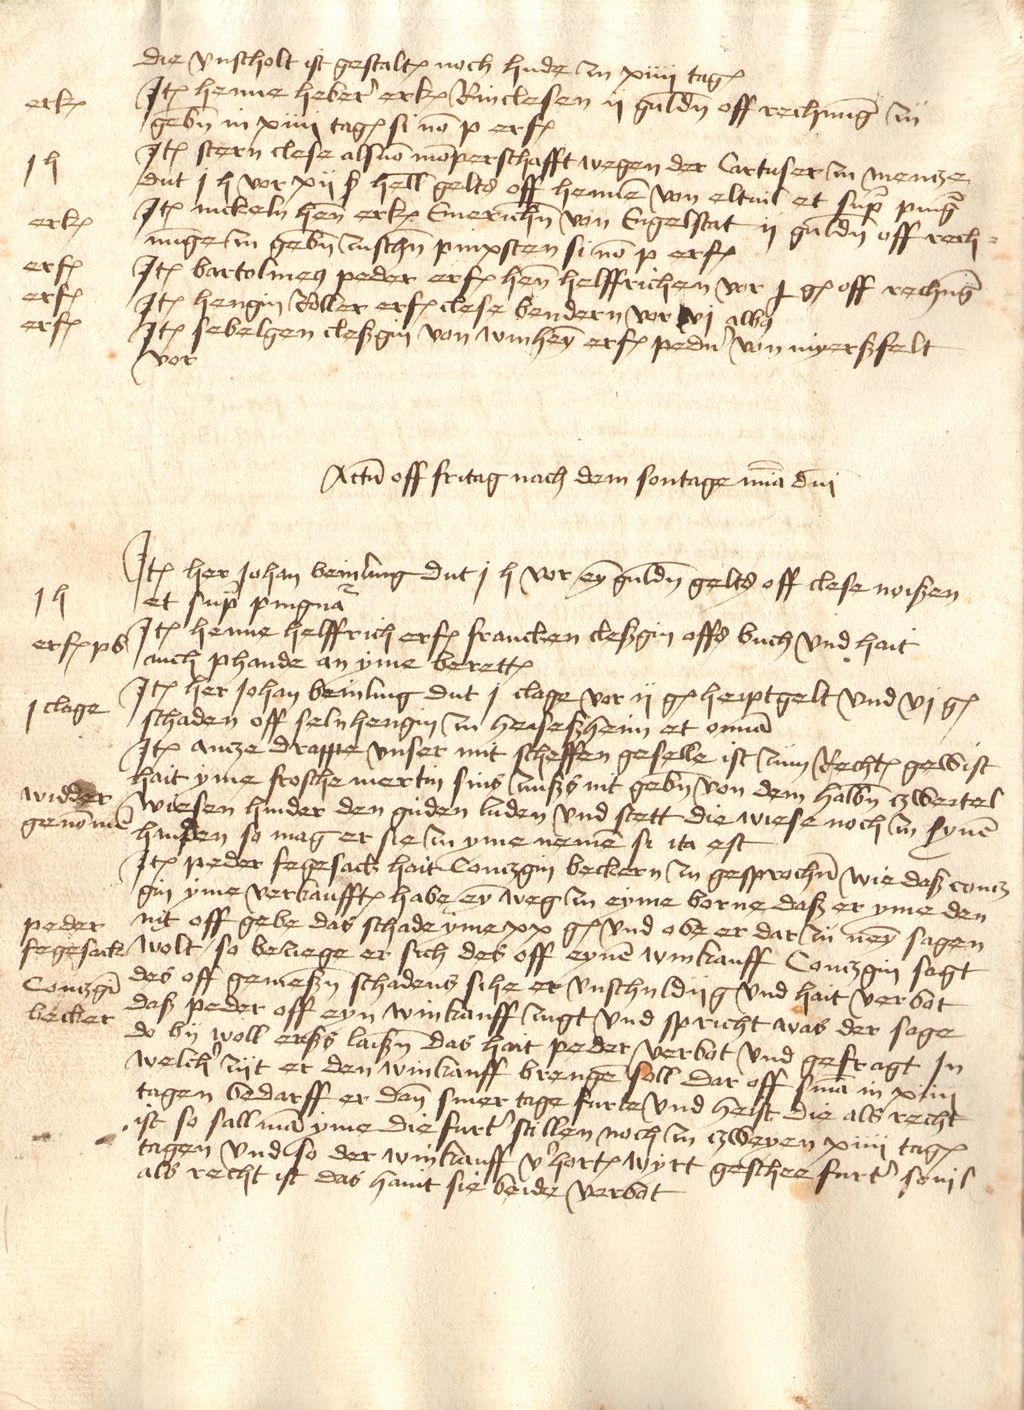 die vnscholt ist gestalt noch hude zu xiiii tag
erk Jt henne heber erk Rinclesen ij guldn off rechnung zu
gebn in xiiii tag si no p erf
j h Jt stern clese als mo͞perschafft wegen der Cartuser zu mencze
dut j h vor xij ß hell gelts off henne von eltuil et sup pmg
erk Jt nickeln hen erk Emerichn von Engelstat ij guldn off rech=
nunge zu gebn zuschn pinxsten si no p erf
erf Jt bartolmeus peder erf hen helffrichen vor j g off rechng
erf Jt hengin Roller erf clese bendern vor vj albus
erf Jt sebelgen cleßgin von winheym erf pedur von myerßfelt
vor
Actu off fritag nach dem sontage mia dni
Jt her Johan beinling dut j h vor ey guldn gelts off clese noißen
j h et sup pmgna
erf ps Jt henne helffrich erf francken cleßgin offs buch vnd hait
auch phande an yme berett
j clage Jt her Johan beinling dut j clage vor ij g heiptgelt vnd vj g
schaden off seln hengin zu heiseßheim et omia
Jt ancze drappe vnser mit scheffen geselle ist zum Recht gewist
hait yme frosche mertin sins zinßs nit gebn von dem halbn czweitel
widder wiesen hinder den guden luden vnd stett die wiese noch in synē
genomē handen so mag er sie zu yme nemē si ita est
Jt peder fegesack hait Conczgin beckern zu gesprochn wie daß concz
gin yme verkaufft habe ey weg zu eyme borne daß er yme den
peder nit off gebe das schade yme xx g vnd obe er dar zu ney sagen
fegesack wolt so beziege er sich des off eynē winkauff Conczgin sagt
Conczgī des off gemeßn schadens sihe er vnschuldig vnd hait verbot
becker daß peder off eyn winkauff zugt vnd spricht was der sage
do by woll erßs laißn das hait peder verbot vnd gefragt In
welchr zijt er den winkauff brenge soll dar off sma in xiiii
tagen bedarff er dan siner tage furter vnd heist die als recht
ist so sall mā yme die furt stillen noch zu czweyen xiiii tag
tagen vnd so der winkauff vhort wyrt geschee furt souil
als recht ist das haint sie beide verbot